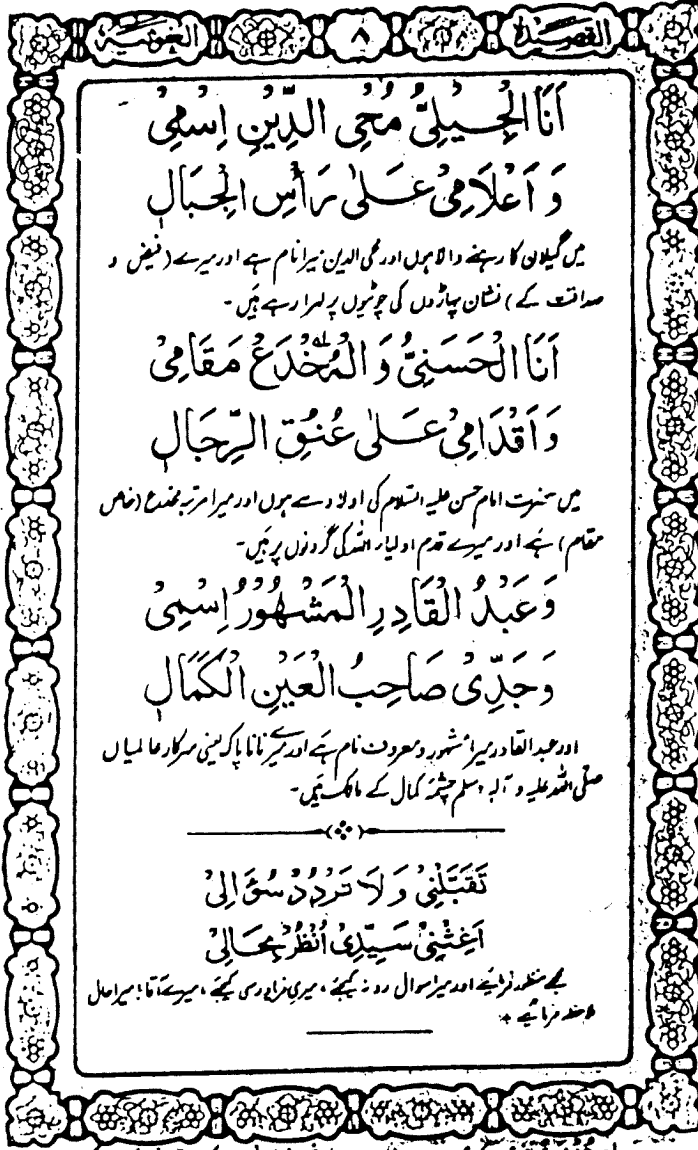 القصيدة ٨ الغوثية
اَنَا الْجِيْلِىُّ مُحْىِ الدِّيْنِ اِسْمِىْ
وَ اَعْلَامِىْ عَلٰى رَأْسِ الْجِبَالٖ
میں گیلان کا رہنے والا ہوں اور محی الدین میرا نام ہے اور میرے (فیض و
صداقت کے) نشان پہاڑوں کی چوٹیوں پر لہرا رہے ہَیں۔
اَنَا الْحَسَنِىُّ وَ الْمُخْدَعْ مَقَامِىْ
وَ اَقْدَامِىْ عَلٰى عُنُقِ الرِّجَالٖ
میں حضرت امام حسن علیہ السلام کی اولاد سے ہوں اور میرا مرتبہ مخدع (خاص
مقام) ہَے اور میرے قدم اولیاء اللہ کی گردنوں پر ہَیں۔
وَ عَبْدُ الْقَادِرِ الْمَشْهُوْرُ اِسْمِىْ
وَ جَدِّىْ صَاحِبُ الْعَيْنِ الْكَمَالٖ
اور عبدالقادر میرا مشہور و معروف نام ہَے اور میرے نانا پاک یعنی سرکار عالمیاں
صلی اللہ علیہ و آلہ وسلم چشمۂ کمال کے مالک ہَیں۔
تَقَبَّلْنِىْ وَ لَا تَرْدُدْ سُؤَالِىْ
اَغِثْنِىْ سَيِّدِىْ اُنْظُرْ بِحَالِىْ
مجھے منظور فرمائیے اور میرا سوال رد نہ کیجئے، میری فریاد رسی کیجئے، میرے آقا! میرا حال
ملاحظہ فرمائیے